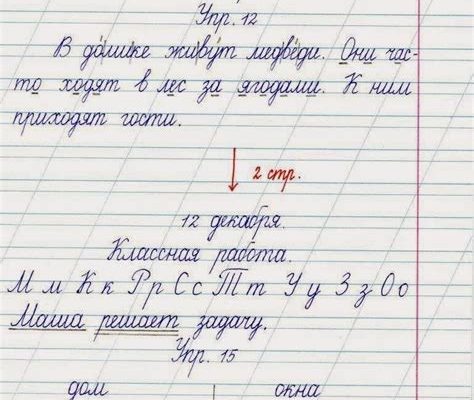 Упр. 12
В домике живут медведи. Они час-
то ходят в лес за ягодами. К ним
приходят гости.
2 стр.
12 декабря.
Классная работа.
М м К к Р р С с Т т У у З з О о
Маша решает задачу.
Упр. 15
дом | окна